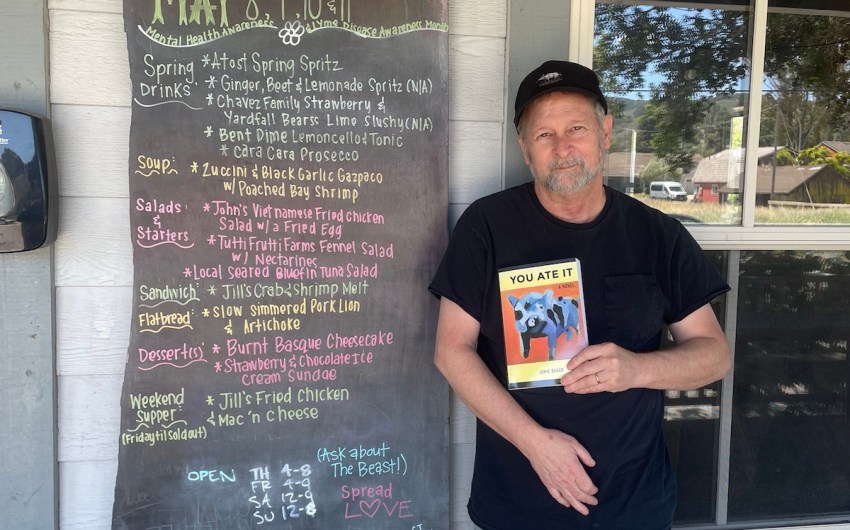 MAY 8, 9, 10 & 11
Mental Health Awareness & Lyme Disease Awareness Month
Spring Drinks
* Atost Spring Spritz
* Ginger, Beet & Lemonade Spritz (N/A)
* Chavez Family Strawberry &
Yardfall Bearss Lime Slushy (N/A)
* Bent Dime Lemoncello & Tonic
* Cara Cara Prosecco
Soup:
* Zuccini & Black Garlic Gazpaco
w/ Poached Bay Shrimp
Salads & Starters
* John's Vietnamese Fried Chicken
Salad w/ a Fried Egg
* Tutti Frutti Farms Fennel Salad
w/ Nectarines
* Local Seared Bluefin Tuna Salad
Sandwich:
* Jill's Crab & Shrimp Melt
Flatbread:
* Slow Simmered Pork Lion
& Artichoke
Dessert(s):
* Burnt Basque Cheesecake
* Strawberry & Chocolate Ice
Cream Sundae
Weekend Supper:
(Friday til Sold out)
* Jill's Fried Chicken
& Mac 'n Cheese
OPEN
TH 4-8
FR 4-9
SA 12-9
SU 12-8
(Ask about
The Beast!)
Spread
LOVE
YOU ATE IT
A NOVEL